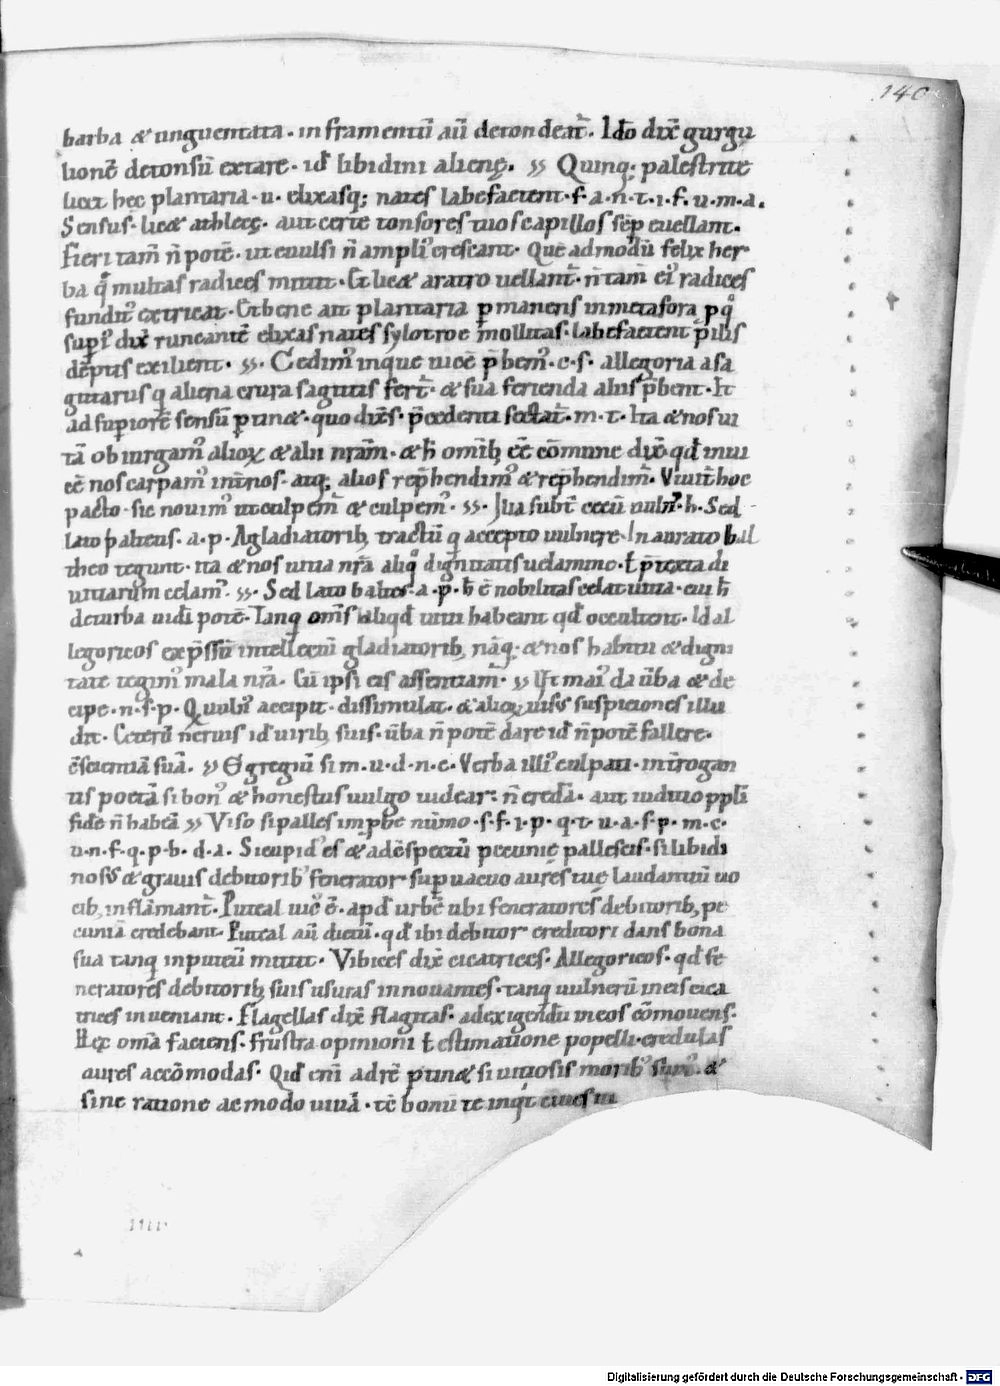 140
barba & unguentata · inframentū aū detondeat̄ · Ido dix̄ gurgu
lionē detonsū extare · id̄ libidini alienę. Quinq; palestritę
licet hec plantaria · u · elixasq; nates labefactent · f · a · n · t · i · f · u · m · a.
Sensus · lic& athletę aut certe tonsores tuos capillos sēp euellant.
Fieri tam̄ n̄ potē · ut euulsi n̄ ampli᾽ crescant · Quēadmodū felix her
ba q̄ multas radices mittit · Et lic& aratro uellant̄ · n̄ tam̄ ei᾽ radices
fundit᾽ extricat · Et bene ait plantaria p manens in metafora
dix̄ runcantē elixas nates labefactent pilis
dēptus exilient · Cedim᾽ inque uicē p̄bem᾽ · c · s · allegoria a sa
gittariis q aliena crura sagittis fert̄ · & sua ferienda aliis p̄bent · It
ad superiorē sensū ptin& · quo dix̄ · p̄cedenti · m · t · Ita & nos ui
tā obiurgam᾽ alioꝝ & alii nr̄am · & h̄ omīb; eē cōmune dix̄ · qd̄ inui
cē nos carpam᾽ · alios rep̄hendim᾽ & rep̄hendim̄ · Viuit̄ hoc
pacto · sic nouim᾽ · Ilia subt̄ cecū uuln̄ · h · Sed
lato balteus · a · p · A gladiatorib; tractū q accepto uulnere · In aurato bal
theo tegunt · ita & nos uitia nr̄a aliq᾽ dignitatis uelamine · ł p̄texta di
uitiarum celam᾽ · Sed lato balteus · a · p · h ē nobilitas celat uitia · cui h̄
deturba uidi potē · Tanq omīs aliqd̄ uitii habeant qd̄ occultent · Id al
legoricos exp̄ssū intellectū gladiatorib; nāq; & nos habitu & digni
tate tegim᾽ mala nr̄a · Cū ipsi eis assentiam̄ · Ut mai᾽ da ūba & de
cipe · n · s · p · Quob᾽ accipit · dissimulat · & alioꝝ suspiciones illu
dit · Ceterū neruis id uirib; suis · ūba n̄ potē dare id n̄ potē fallere ·
cscientiā suā. Egregiū si m · u · d · n · c · Verba illi᾽ culpati · int̄rogan
tis poetā si bon᾽ & honestus uulgo uidear · n̄ credā · aut iuditio ppłi
fidē n̄ habeā Viso si palles impbe nūmo · s · f · i · p · q · t · u · a · s · p · m · c ·
u · n · f · q · p · b · d · a · Si cupid᾽ es & ad cspectū pecunię pallescis · si libidi
nosus & grauis debitorib᾽ fenerator supuacuo aures tuę laudantiū uo
cib; inflāmant̄ · Puteal uic᾽ ē · apd̄ urbē ubi feneratores debitorib; pe
cuniā credebant · Puteal aū dictū · qd̄ ibi debitor creditori dans bona
sua tanq in puteū mittit · Vibices dix̄ cicatrices · Allegoricos · qd̄ fe
neratores debitorib; suis usuras innouantes · tanq uulnerū in eis cica
trices inueniant · Flagellas dix̄ flagitas · ad exigendū in eos cōmouens ·
Hec omā faciens · frustra opinioni ł estimatione popelli · credulas
aures accōmodas · Qid eni ad rē ptin& si uitiosis morib᾽ & 
sine ratione ac modo uiuā · tē bonū te inqt
Digitalisierung gefördert durch die Deutsche Forschungsgemeinschaft - DFG